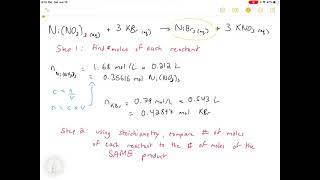 Ni(NO3)3 (aq) + 3 KBr (aq) → NiBr3 (aq) + 3 KNO3 (aq)
Step 1: Find # moles of each reactant
n Ni(NO3)3 = 1.68 mol/L × 0.212 L
= 0.35616 mol Ni(NO3)3
c = n/V
n = c × V
n KBr = 0.79 mol/L × 0.543 L
= 0.42897 mol KBr
Step 2: using stoichiometry, compare # of moles
of each reactant to the # of moles of the
SAME product